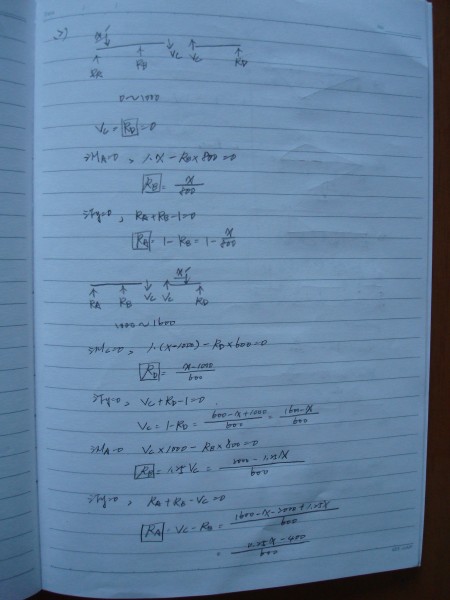 3)
x
RA RB VC VC RD
0~1000
VC = RD = 0
ΣMA=0, 1·x - RB×800 = 0
RB = x/800
ΣFy=0, RA+RB-1=0
RA = 1 - RB = 1 - x/800
x
RA RB VC VC RD
1000~1600
ΣMC=0, 1·(x-1000) - RD×600=0
RD = (x-1000)/600
ΣFy=0, VC+RD-1=0
VC = 1-RD = (600-x+1000)/600 = (1600-x)/600
ΣMA=0 VC×1000 - RB×800=0
RB = 1.25 VC = (2000-1.25x)/600
ΣFy=0, RA+RB-VC=0
RA = VC-RB = (1600-x-2000+1.25x)/600
= (0.25x-400)/600